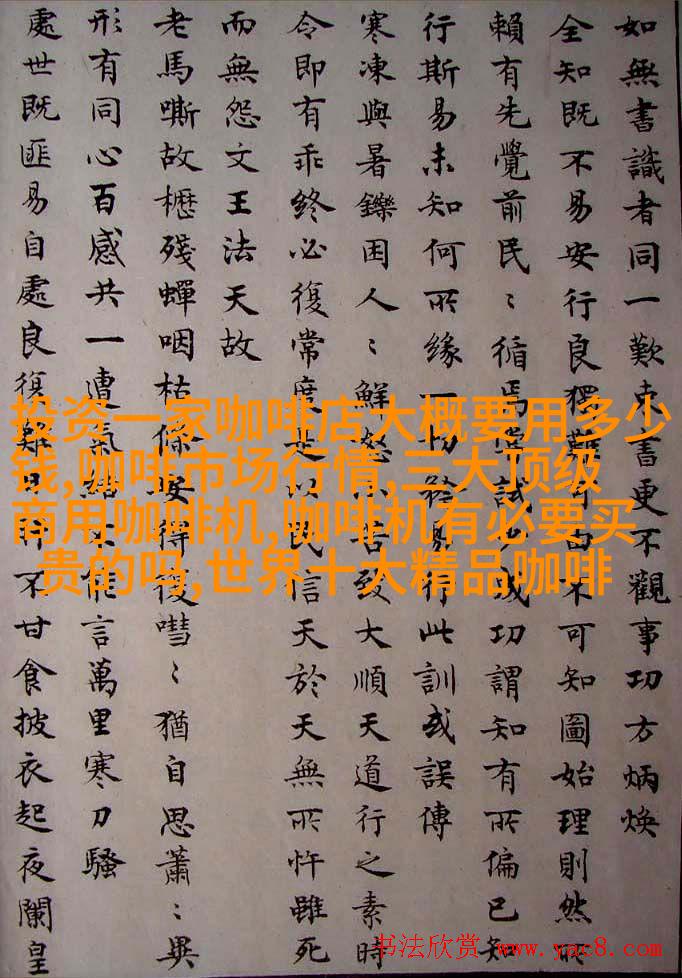 如無書識者同一歎束書更不觀事功方炳煥
全知既不易安行良獨難可由不可知圖始理則然所
賴有先覺前民〻循焉試少成功謂知有所偏已知
行斯易未知何所緣一切易行此訓或誤傳
寒凍與暑鑠困人〻鮮怒小苦致大順天道行之素時
令即有乖終必復常度是以民信天於天無所忤雖死
而無怨文王法天故
老馬嘶故櫪殘蟬咽枯條安得後嘒〻猶自思蕭〻異
形有同心百感共一遭氣結不能言萬里寒刀騷
處世既匪易自處良復難日旰不甘食披衣起夜闌皇
投资一家咖啡店大概要用多少
钱,咖啡市场行情,三大顶级
商用咖啡机,咖啡机有必要买
贵的吗,世界十大精品咖啡
书法欣赏 www.yac8.com